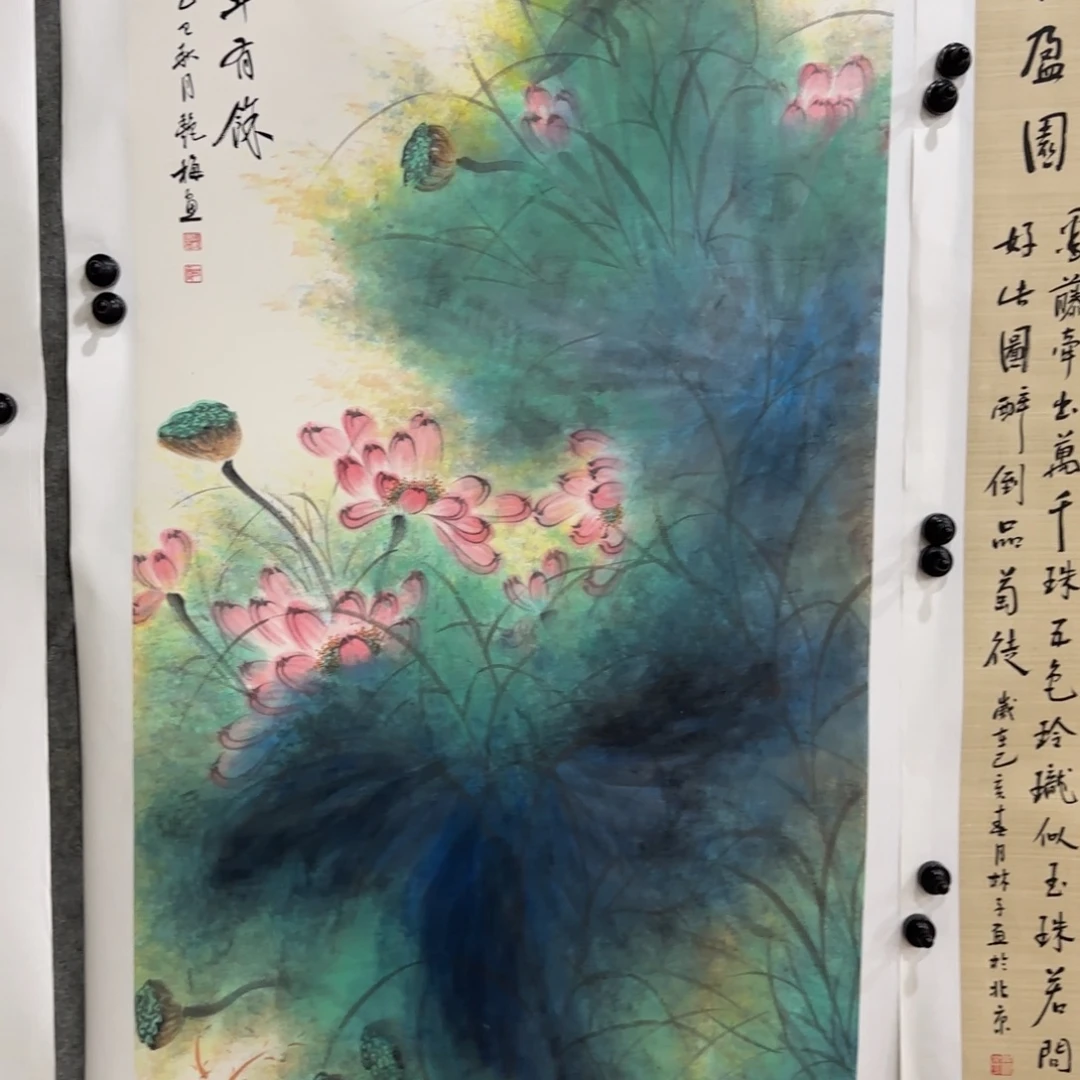 有餘
乙巳秋月艷梅画
盈園
藤牽出萬千珠五色玲瓏似玉珠若問
好此圖醉倒品萄徒
歲在己亥春月林子画於北京